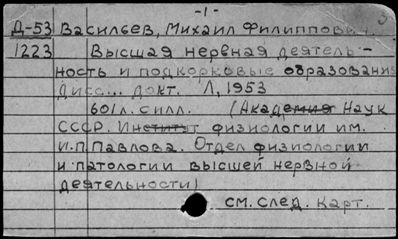 -1-
Д-53 Васильев, Михаил Филиппович.
1223 Высшая нервная деятель-
ность и подкорковые образования
Дисс... докт. Л, 1953
601л. с илл. (Академия Наук
СССР. Институт физиологии им.
И.П.Павлова. Отдел физиологии
и патологии высшей нервной
деятельности)
см. след. карт.